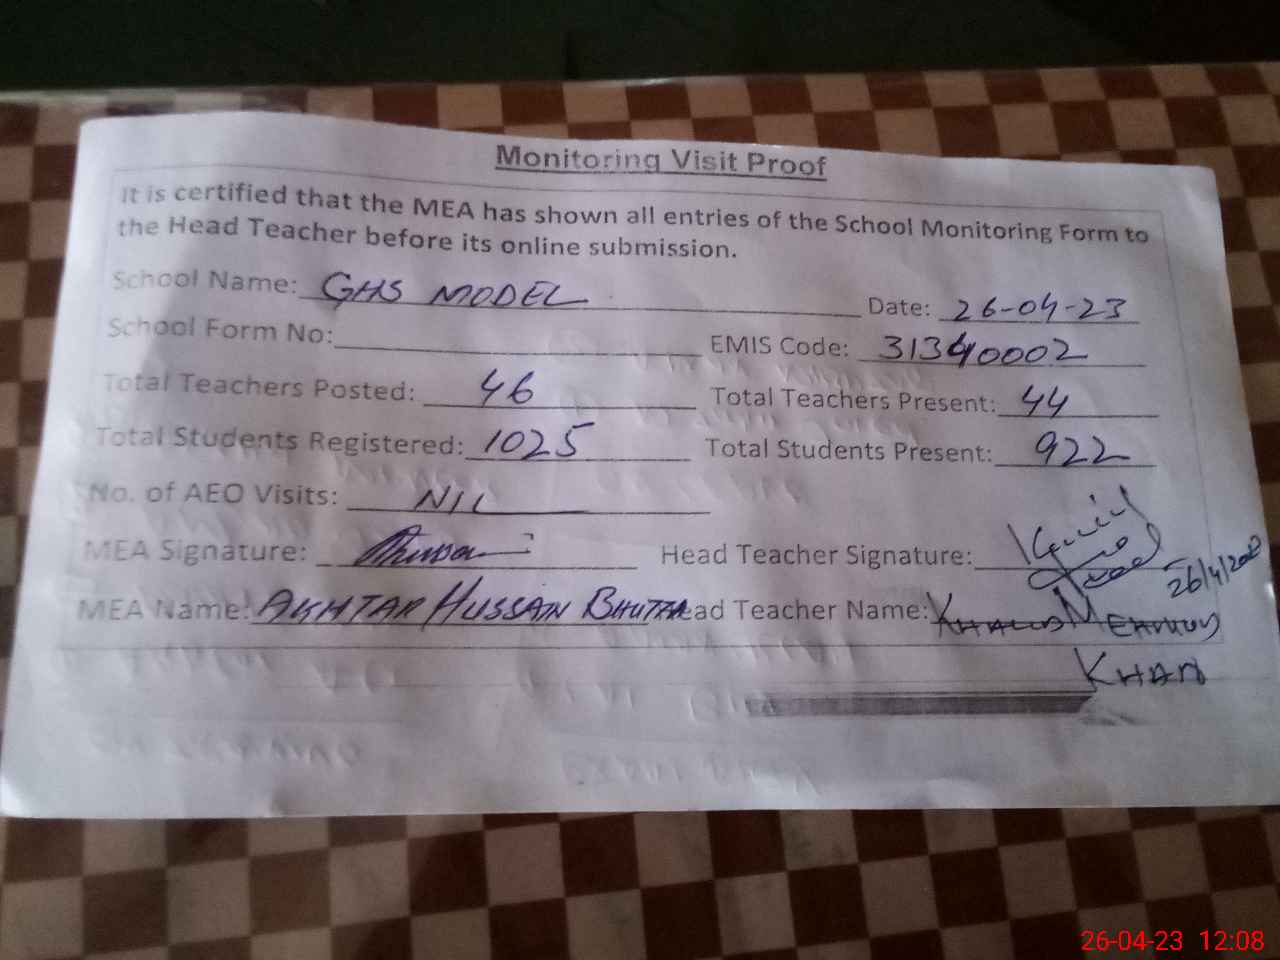 Monitoring Visit Proof
It is certified that the MEA has shown all entries of the School Monitoring Form to
the Head Teacher before its online submission.
School Name: GHS MODEL Date: 26-04-23
School Form No: EMIS Code: 31340002
Total Teachers Posted: 46 Total Teachers Present: 44
Total Students Registered: 1025 Total Students Present: 922
No. of AEO Visits: NIL
MEA Signature: Head Teacher Signature:
26/4/2023
MEA Name: AKHTAR HUSSAIN BHUTTA ead Teacher Name: KHALID MEHMUD
KHAN
26-04-23 12:08